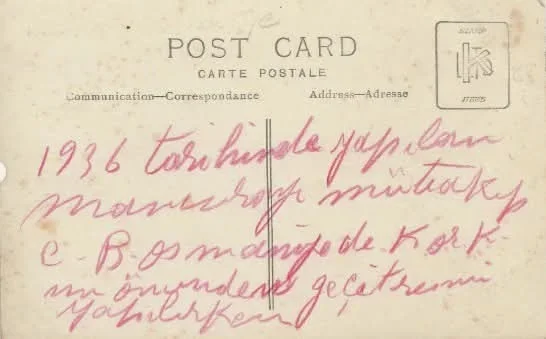 POST CARD
CARTE POSTALE
Communication—Correspondance Address—Adresse
1936 tarihinde yapılan
manevrayı müteakıp
C. B. Osmaniyede Kork
un önünden geçit resmi
yapılırken